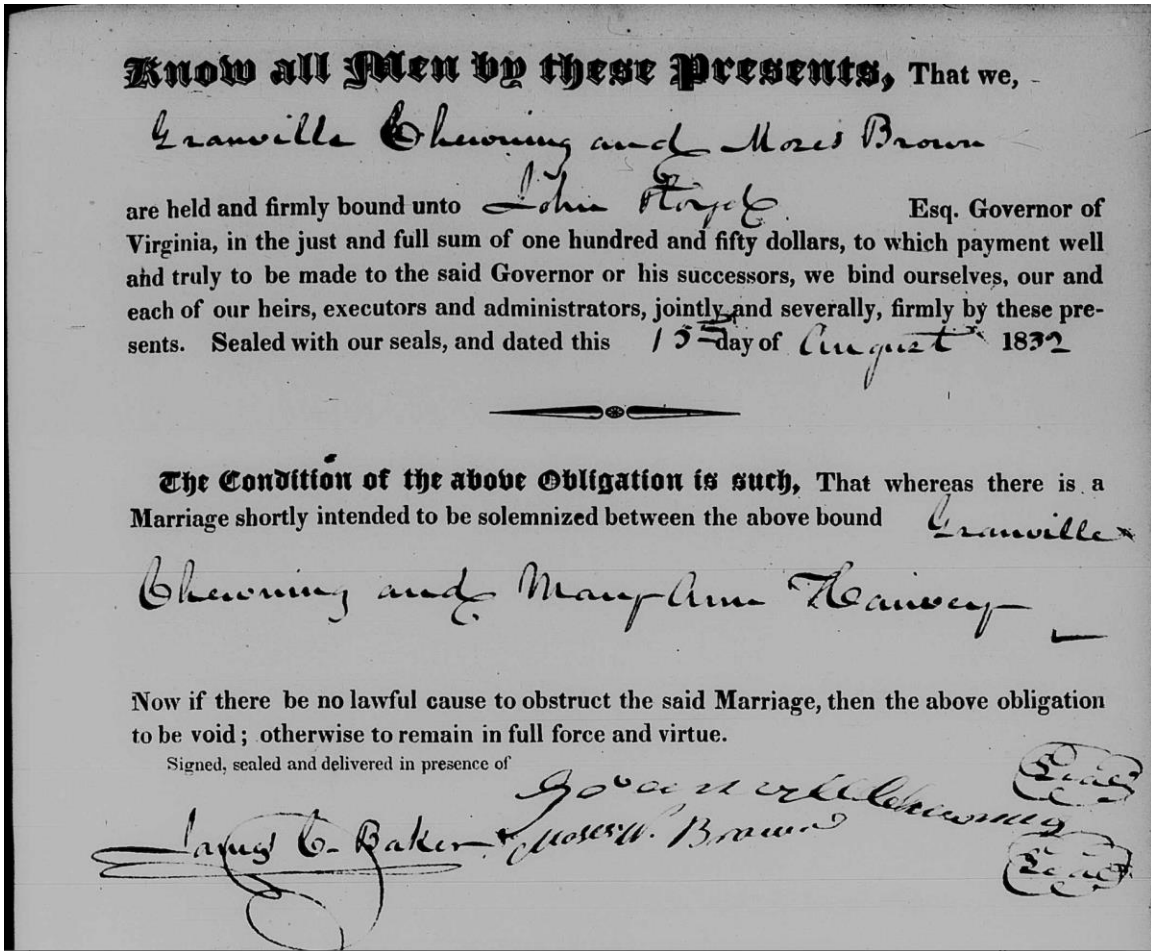 Know all Men by these Presents, That we,
Granville Chewning and Moses Brown
are held and firmly bound unto John Floyd Esq. Governor of
Virginia, in the just and full sum of one hundred and fifty dollars, to which payment well
and truly to be made to the said Governor or his successors, we bind ourselves, our and
each of our heirs, executors and administrators, jointly and severally, firmly by these pre-
sents. Sealed with our seals, and dated this 15th day of August 1832
The Condition of the above Obligation is such, That whereas there is a
Marriage shortly intended to be solemnized between the above bound Granville
Chewning and Mary Ann
Now if there be no lawful cause to obstruct the said Marriage, then the above obligation
to be void; otherwise to remain in full force and virtue.
Signed, sealed and delivered in presence of
Chewning Seal
James C. Baker Moses W. Brown Seal